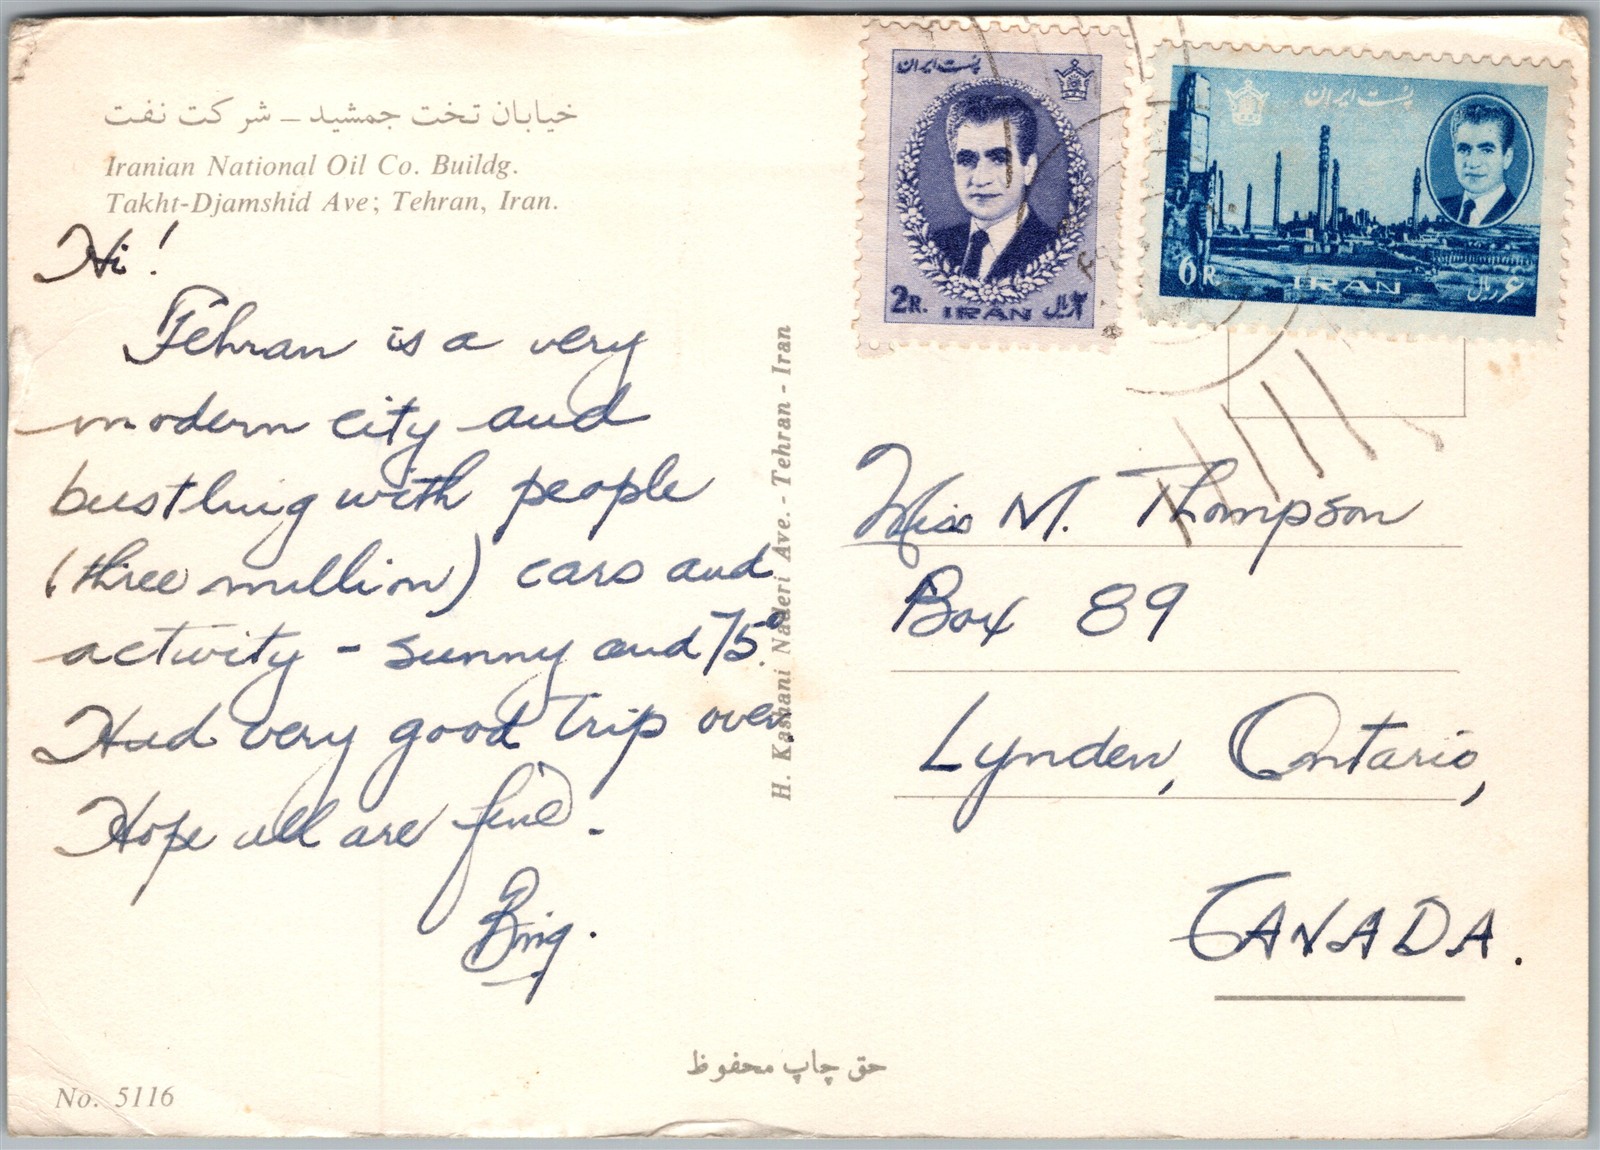 خیابان تخت جمشید – شرکت نفت
Iranian National Oil Co. Buildg.
Takht-Djamshid Ave; Tehran, Iran.
Hi!
Tehran is a very
modern city and
bustling with people
(three million) cars and
activity - sunny and 75°.
Had very good trip over.
Hope all are fine.
No. 5116
H. Kashani Naderi Ave. - Tehran - Iran
حق چاپ محفوظ
پست ایران
2R. IRAN ۲ ریال
پست ایران
6R IRAN ۶ ریال
Miss M. Thompson
Box 89
Lynden, Ontario,
CANADA.